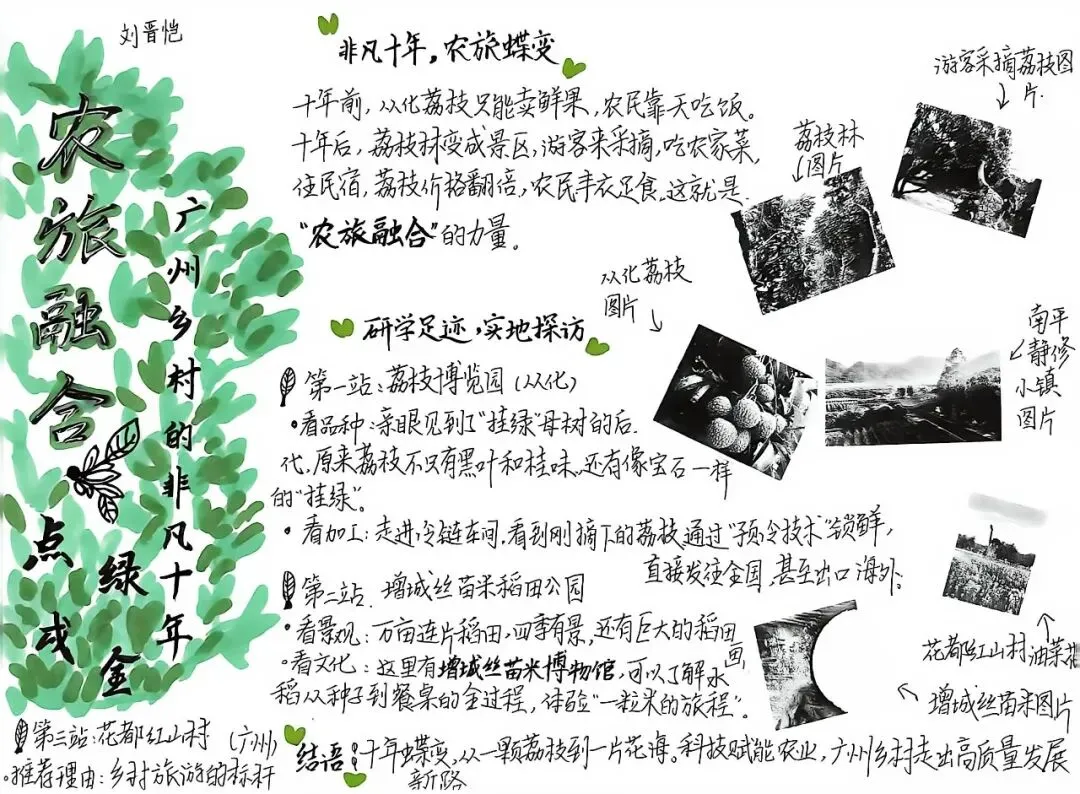 刘晋恺
农旅融合
点绿成金
广州乡村的非凡十年
非凡十年，农旅蝶变
十年前，从化荔枝只能卖鲜果，农民靠天吃饭。
十年后，荔枝林变成景区，游客来采摘，吃农家菜，
住民宿，荔枝价格翻倍，农民丰衣足食，这就是
“农旅融合”的力量。
游客采摘荔枝图
片.
荔枝林
图片
从化荔枝
图片
南平
静修
小镇
图片
研学足迹，实地探访
第一站：荔枝博览园（从化）
·看品种：亲眼见到了“挂绿”母树的后
代，原来荔枝不只有黑叶和桂味，还有像宝石一样
的“挂绿”。
·看加工：走进冷链车间，看到刚摘下的荔枝通过“预冷技术”锁鲜，
直接发往全国，甚至出口海外。
第二站. 增城丝苗米稻田公园
·看景观：万亩连片稻田，四季有景，还有巨大的稻田
画
·看文化：这里有增城丝苗米博物馆，可以了解水
稻从种子到餐桌的全过程，体验“一粒米的旅程”。
花都红山村油菜花
增城丝苗米图片
第三站：花都红山村（广州）
·推荐理由：乡村旅游的标杆
结语：十年蝶变，从一颗荔枝到一片花海。科技赋能农业，广州乡村走出高质量发展
新路